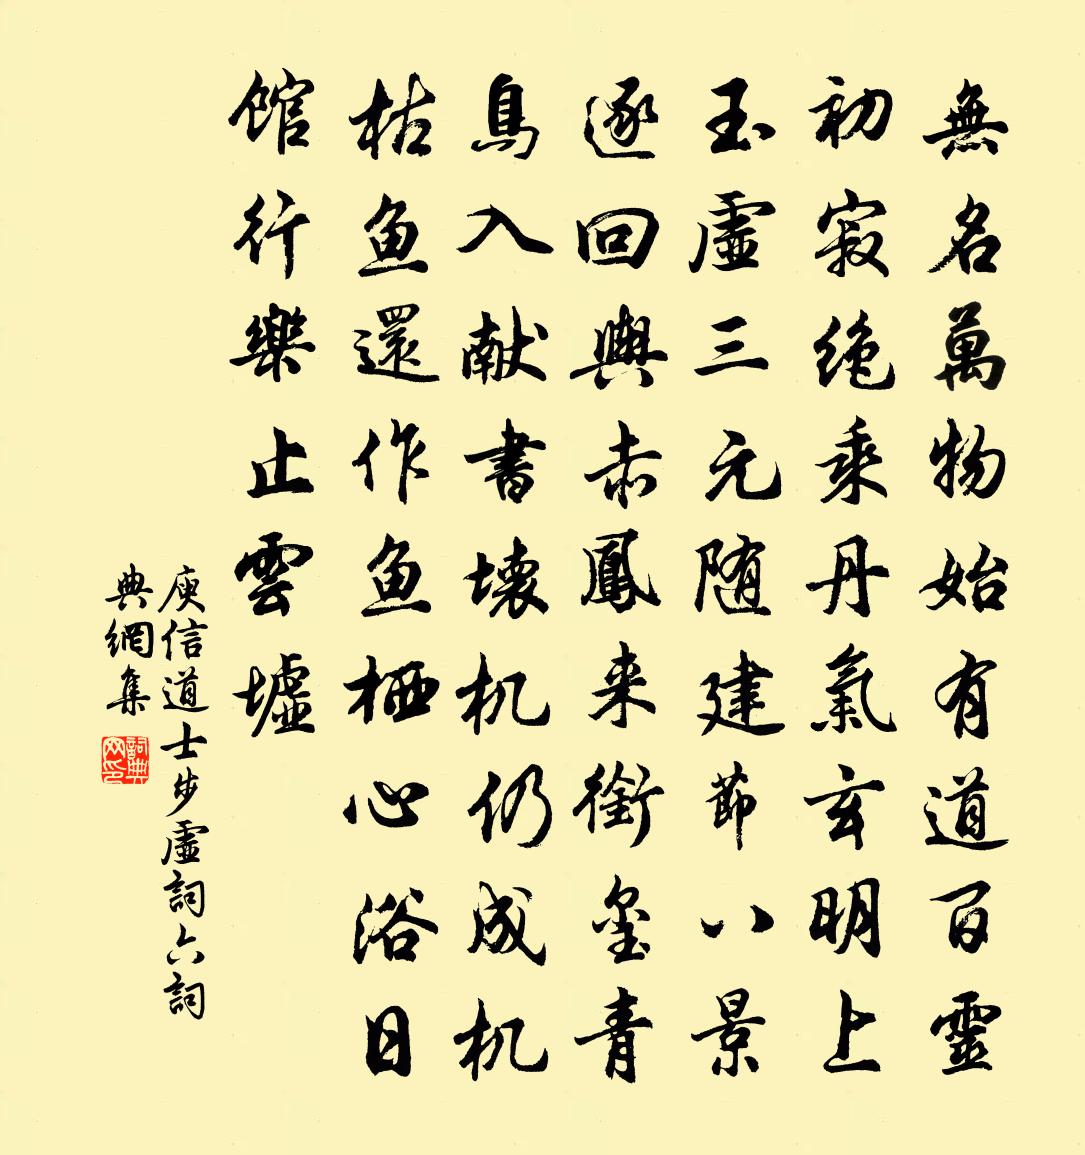 無名萬物始有道百靈
初寂絕乘丹氣玄明上
玉虛三元随建節八景
逐回輿赤鳳来銜璽青
鳥入献書壊机仍成机
枯魚還作魚栖心浴日
館行樂止雲墟
庾信道士步虛詞六詞
典網集
詞典